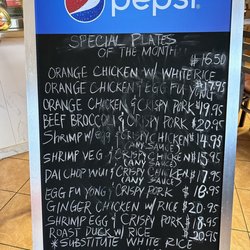 pepsi
SPECIAL PLATES
OF THE MONTH
$16.50
ORANGE CHICKEN W/ WHITE RICE
ORANGE CHICKEN & EGG FU YUNG $17.95
ORANGE CHICKEN & CRISPY PORK $19.95
BEEF BROCCOLI & CRISPY PORK $20.95
SHRIMP W/ & CRISPY CHICKEN $14.95
(ANY SAUCE)
SHRIMP VEG & CRISPY CHICKEN $15.95
(ANY SAUCE)
DAI CHOP WUI & CRISPY CHICKEN $17.95
(ANY SAUCE)
EGG FU YONG & CRISPY PORK $18.95
GINGER CHICKEN W/ RICE $20.95
SHRIMP EGG & CRISPY PORK $18.95
ROAST DUCK W/ RICE $20.95
*SUBSTITUTE WHITE RICE